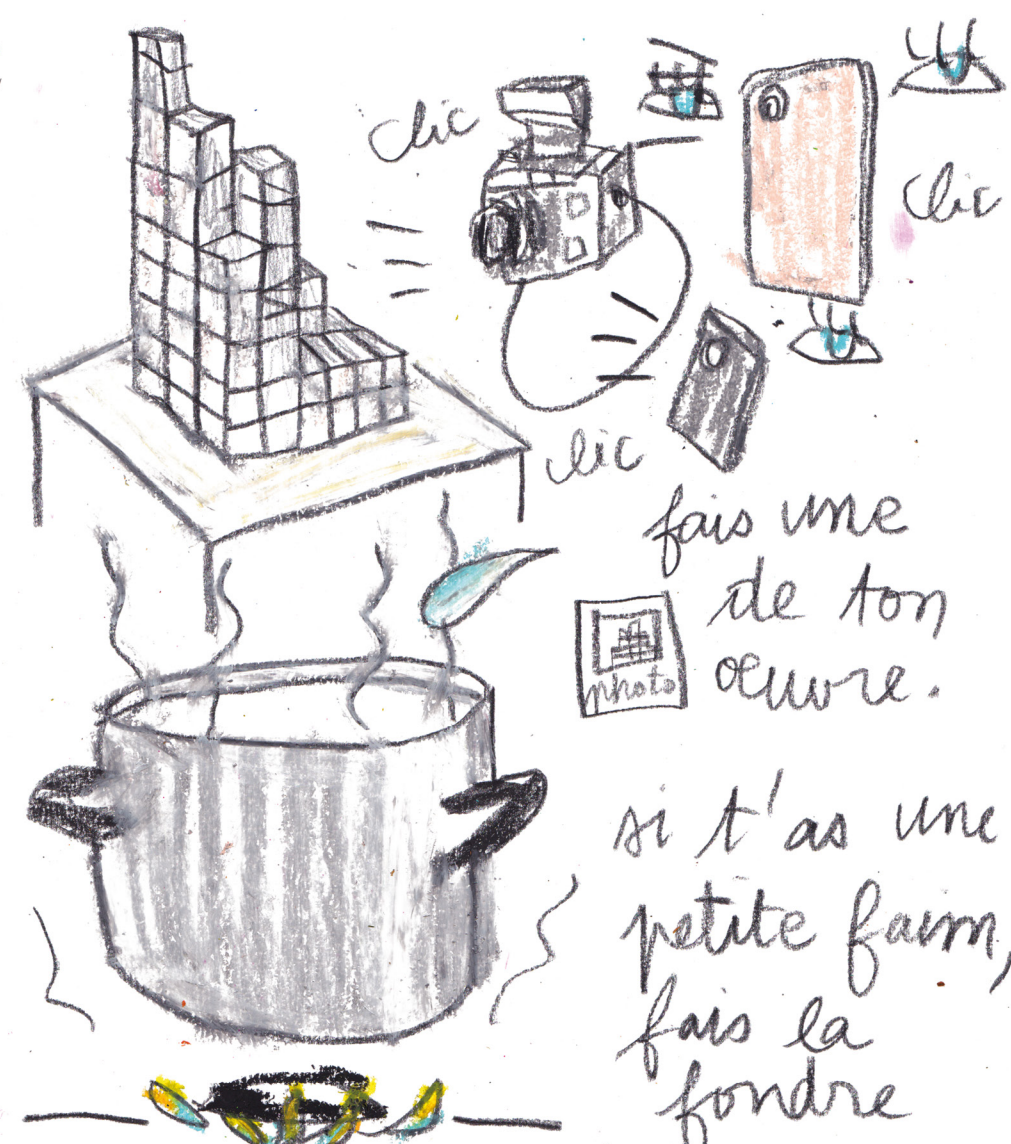 clic
clic
clic
fais une
de ton
photo
œuvre.
si t'as une
petite faim,
fais la
fondre